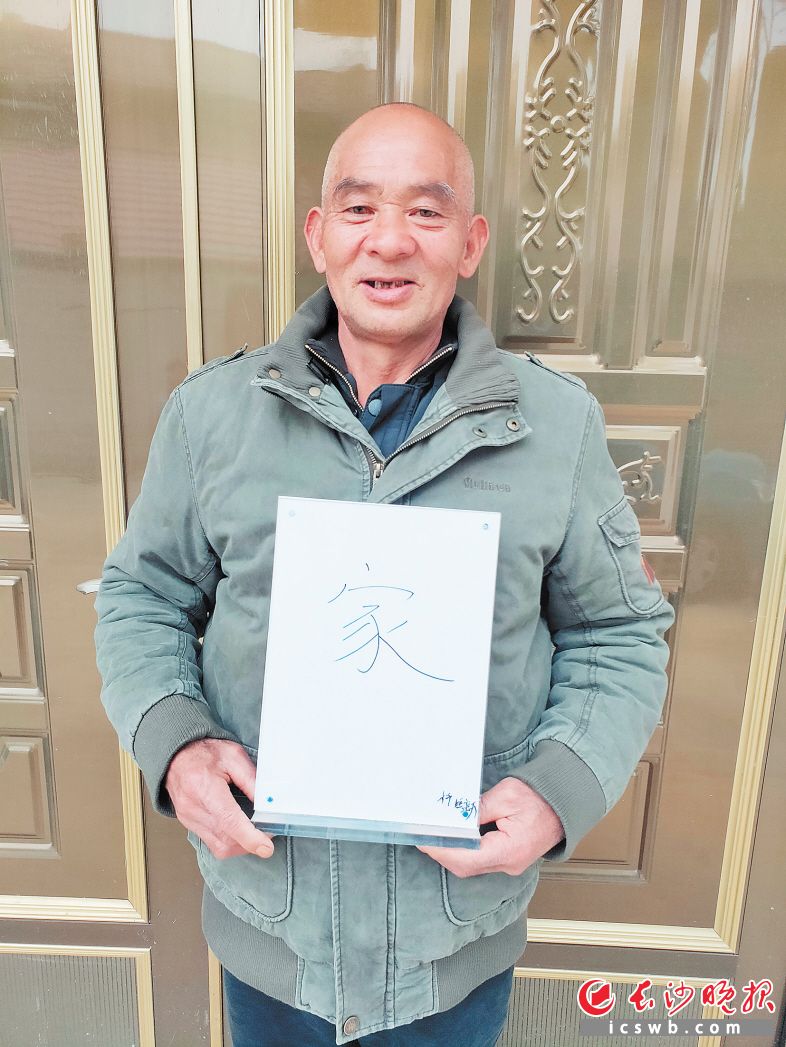 家
长沙晚报
icswb.com